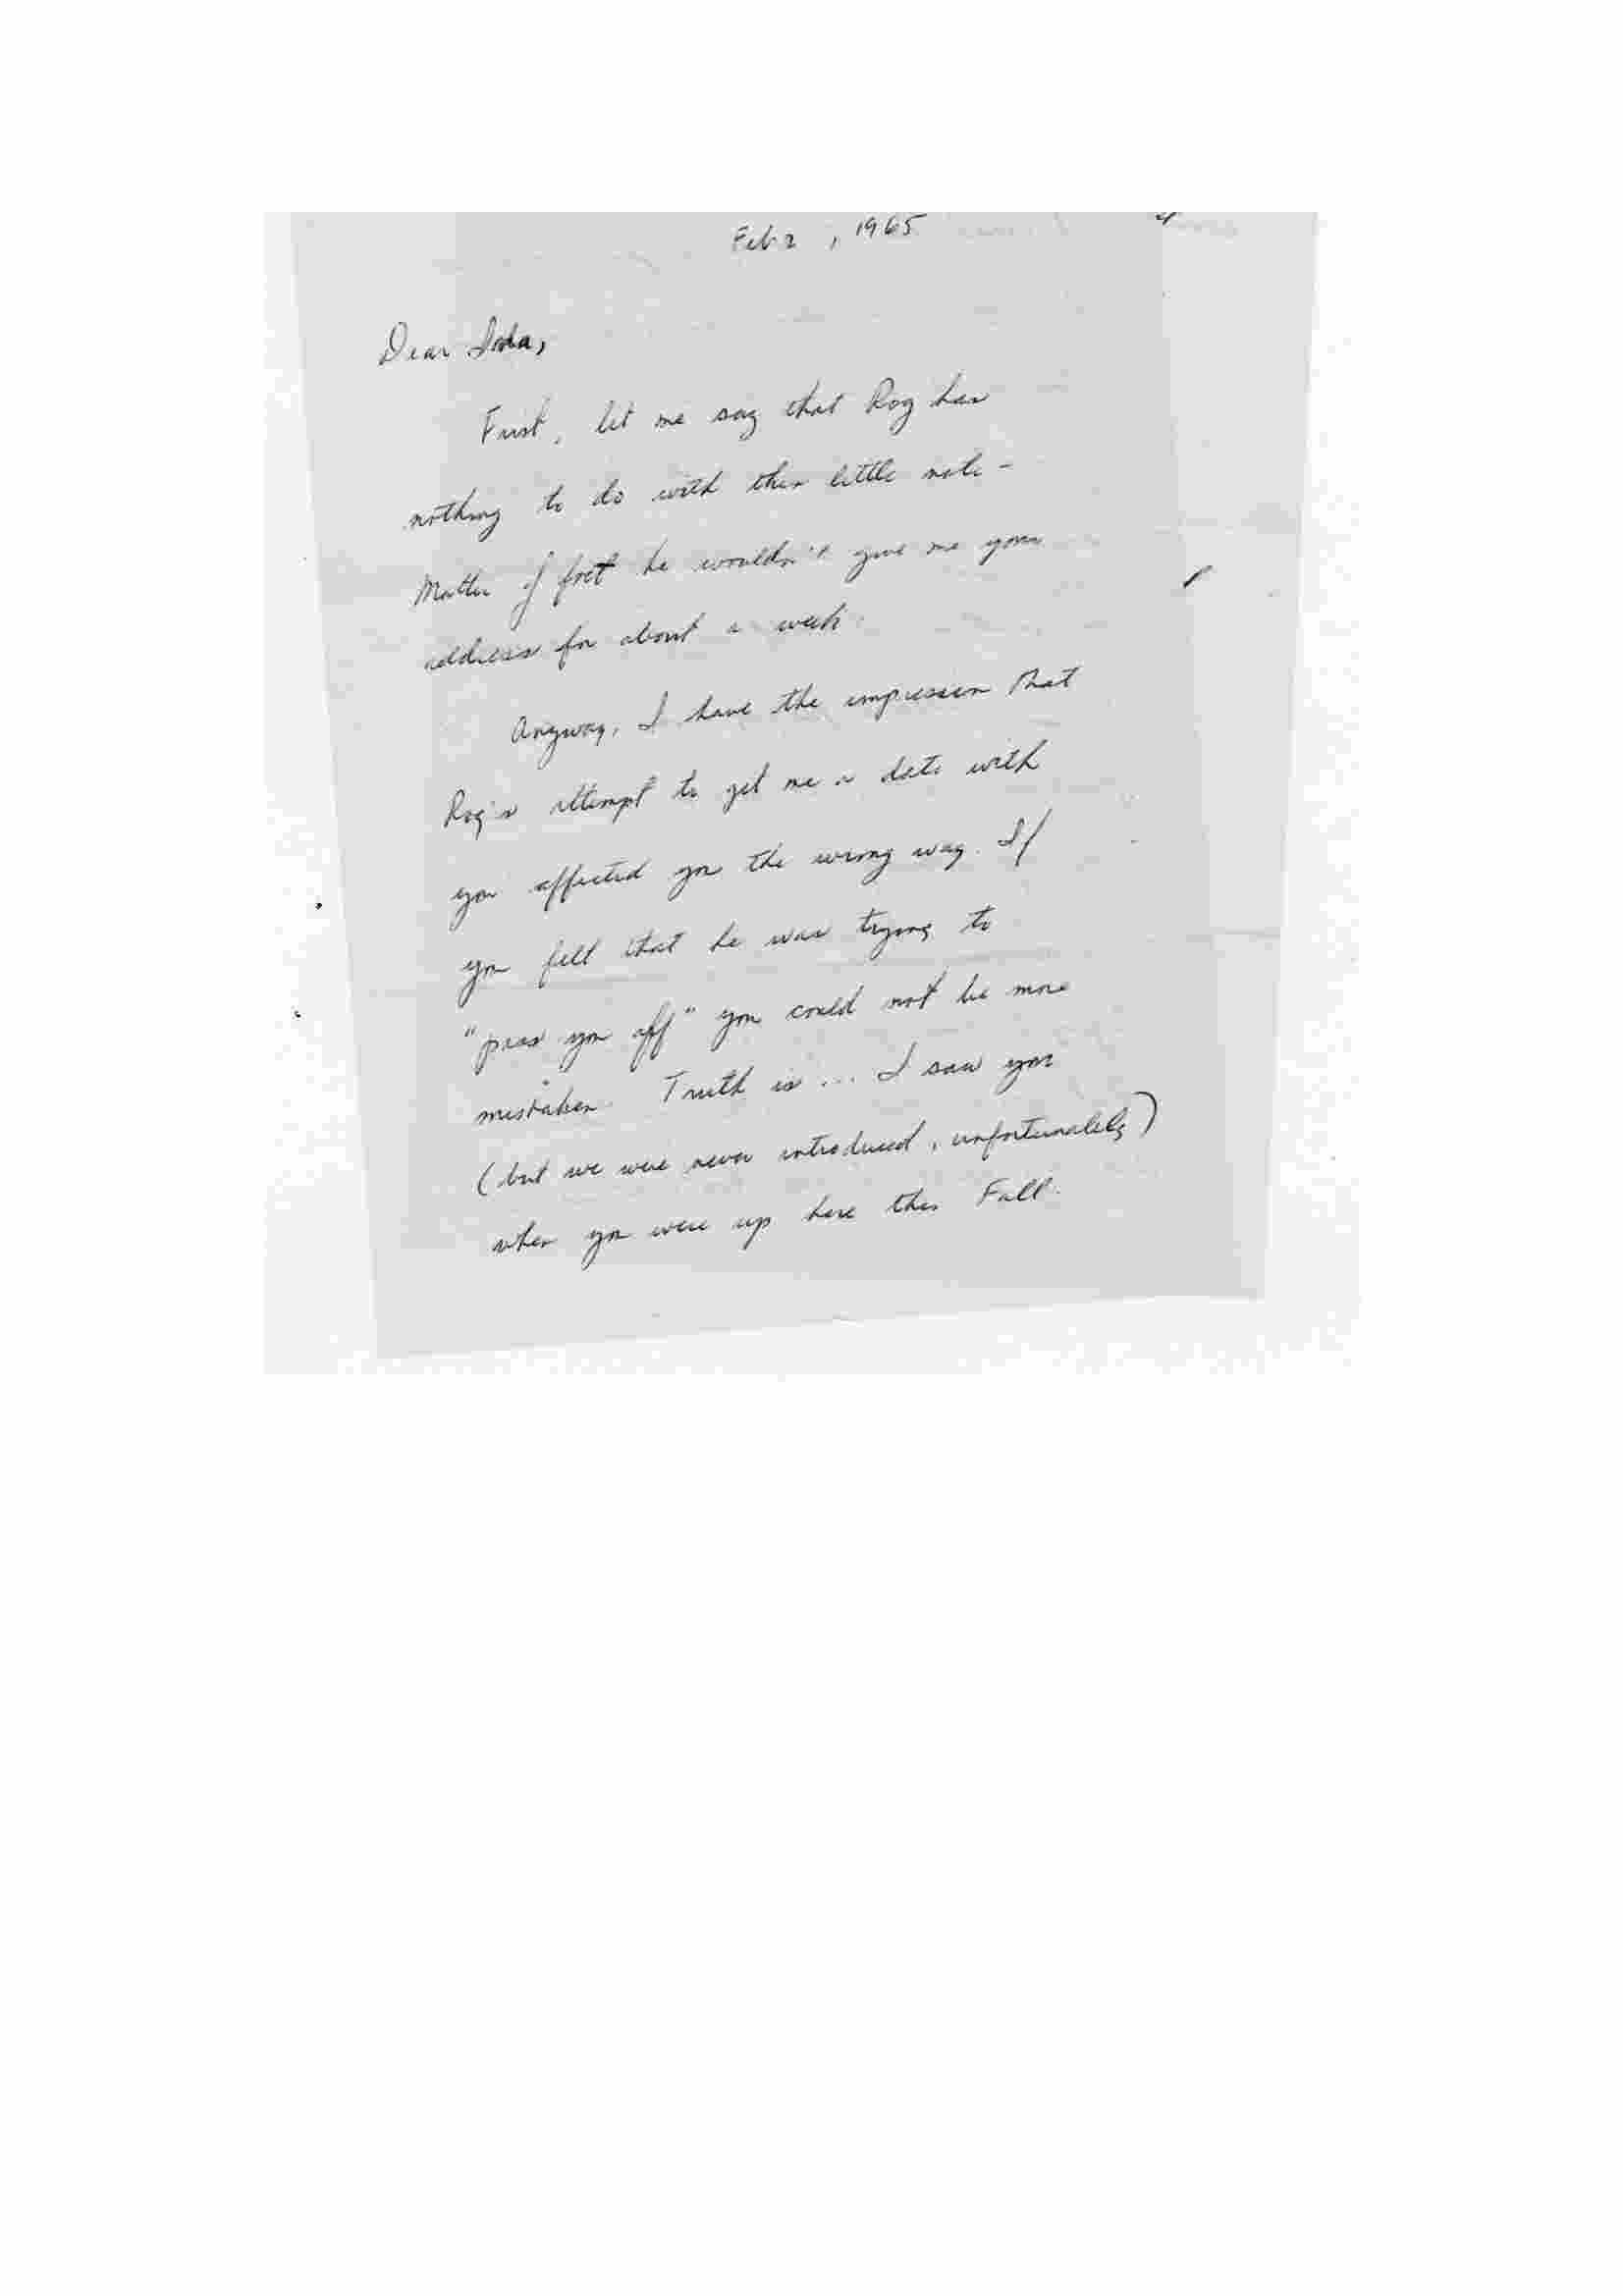 Feb 2, 1965
Dear
First, let me say that Rog has
nothing to do with this little note -
Matter of fact he wouldn't give me your
address for about a week.
Anyway, I have the impression that
Rog's attempt to get me a date with
you affected you the wrong way. If
you felt that he was trying to
"pass you off" you could not be more
mistaken. Truth is ... I saw you
(but we were never introduced, unfortunately)
when you were up here this Fall.